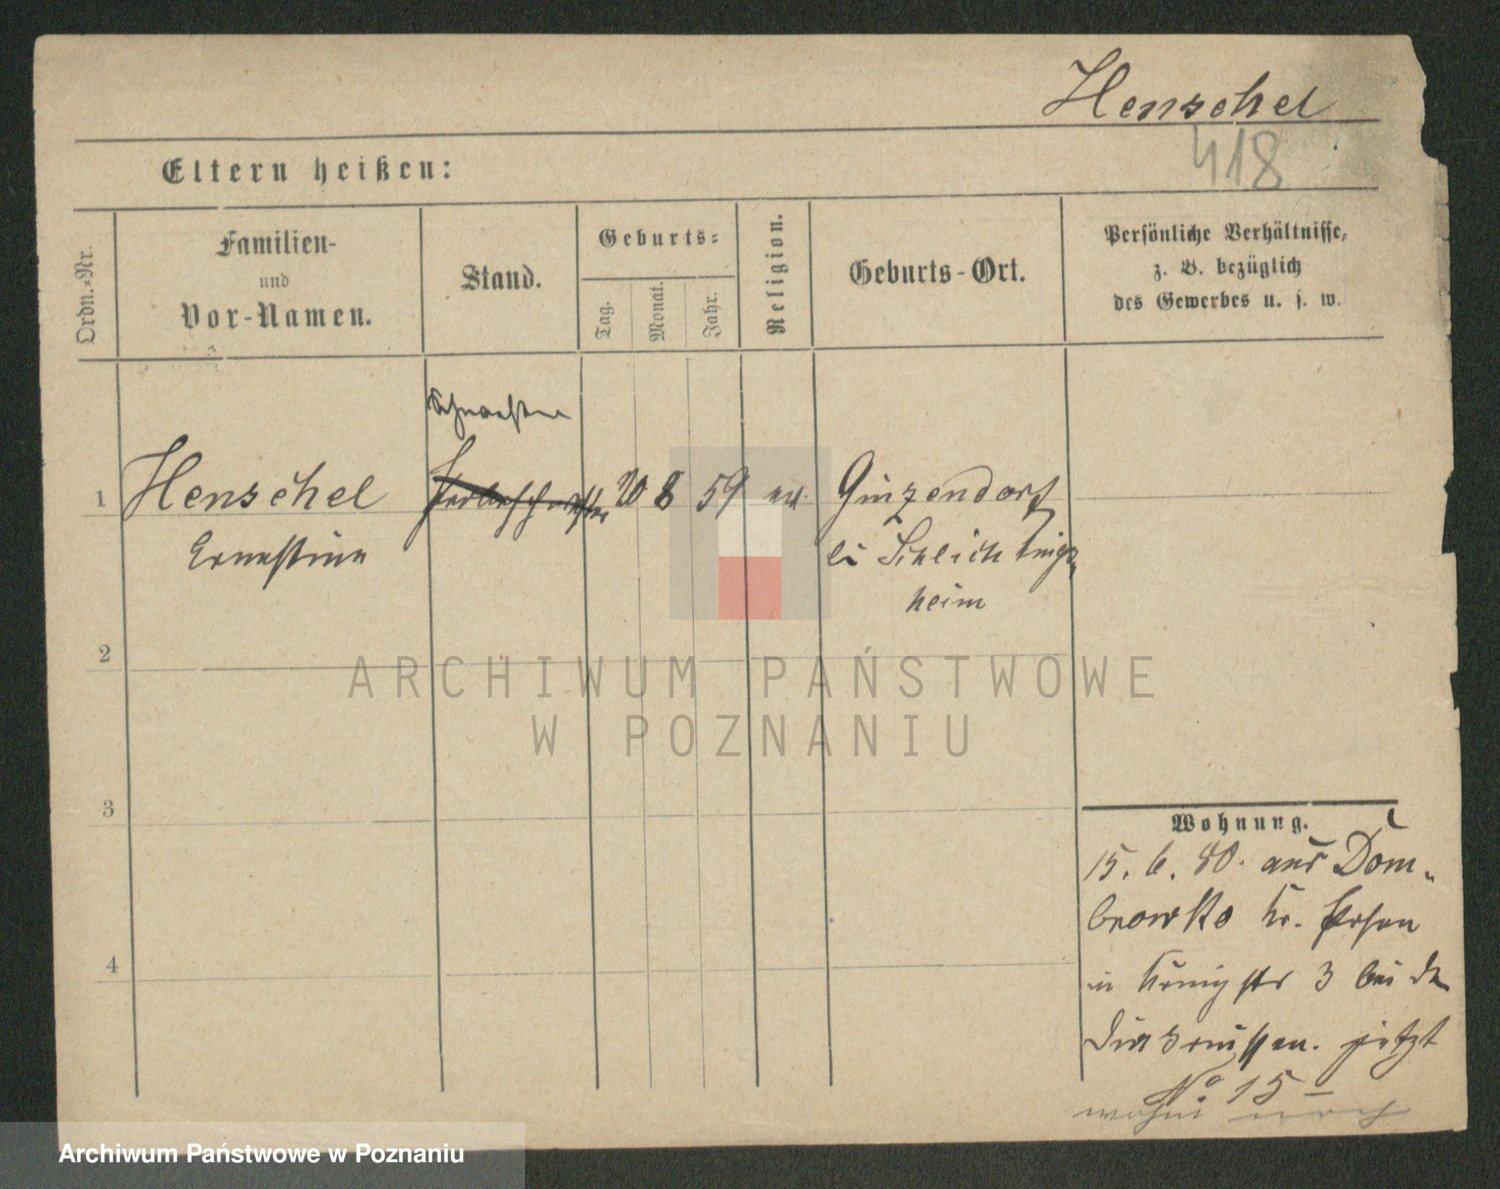 Henschel
418
Eltern heißen:
Ordn.-Nr.
Familien-
und
Vor-Namen.
Stand.
Geburts-
Tag.
Monat.
Jahr.
Religion.
Geburts-Ort.
Persönliche Verhältnisse,
z. B. bezüglich
des Gewerbes u. s. w.
Schwester
1 Henschel 20 8 59 ev. Ginzendorf
Ernestine bei Schlichtings-
heim
2
3
4
Wohnung.
15. 6. 80. aus Dom-
browko Kr. Posen
in Königstr 3 bei den
Diakonissen. jetzt
No. 15
wohnt noch
ARCHIWUM PAŃSTWOWE
W POZNANIU
Archiwum Państwowe w Poznaniu